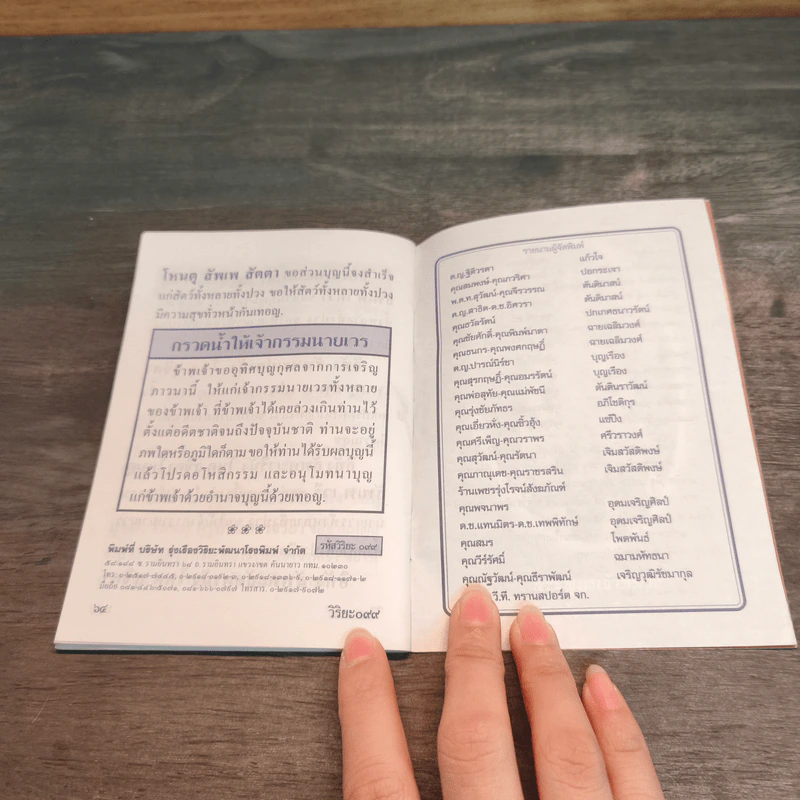 โหนตุ สัพเพ สัตตา ขอส่วนบุญนี้จงสำเร็จ
แก่สัตว์ทั้งหลายทั้งปวง ขอให้สัตว์ทั้งหลายทั้งปวง
มีความสุขทั่วหน้ากันเทอญ.
กรวดน้ำให้เจ้ากรรมนายเวร
ข้าพเจ้าขออุทิศบุญกุศลจากการเจริญ
ภาวนานี้ ให้แก่เจ้ากรรมนายเวรทั้งหลาย
ของข้าพเจ้า ที่ข้าพเจ้าได้เคยล่วงเกินท่านไว้
ตั้งแต่อดีตชาติจนถึงปัจจุบันชาติ ท่านจะอยู่
ภพใดหรือภูมิใดก็ตาม ขอให้ท่านได้รับผลบุญนี้
แล้วโปรดอโหสิกรรม และอนุโมทนาบุญ
แก่ข้าพเจ้าด้วยอำนาจบุญนี้ด้วยเทอญ.
พิมพ์ที่ บริษัท รุ่งเรืองวิริยะพัฒนาโรงพิมพ์ จำกัด รหัสวิริยะ ๐๙๙
ซ. รามอินทรา ๖๘ ถ. รามอินทรา แขวง/เขต คันนายาว กทม. ๑๐๒๓๐
๖๔ วิริยะ๐๙๙
รายนามผู้จัดพิมพ์
ด.ญ.ฐิติวรดา แก้วใจ
คุณสมพงษ์-คุณภวริศา ปยกระเจา
พ.ต.ท.สุวัฒน์-คุณจีรวรรณ ตันติมาสน์
ด.ญ.สาธิต-ด.ช.อิศวรา ตันติมาสน์
คุณธวัลรัตน์ ปกเกศธนาวรัตน์
คุณชัยศักดิ์-คุณพิมพ์มาดา ฉายเฉลิมวงศ์
คุณธนกร-คุณพงศกฤษฏิ์ ฉายเฉลิมวงศ์
ด.ญ.ปารณ์นิร์ชา บุญเรือง
คุณสุรกฤษฏิ์-คุณอมรรัตน์ บุญเรือง
คุณพ่อสุทัย-คุณแม่พัชนี ตันตินราวัฒน์
คุณรุ่งชัยภัทธร อภิโชติกุร
คุณเอี่ยวหั่ง-คุณซิ้วอุ้ง แซ่ปึง
คุณศรีเพ็ญ-คุณวราพร ศรีวราวงศ์
คุณสุวัฒน์-คุณรัตนา เจิมสวัสดิพงษ์
คุณภาณุเดช-คุณราชรสริน เจิมสวัสดิพงษ์
ร้านเพชรรุ่งโรจน์สังฆภัณฑ์
คุณพจนาพร อุดมเจริญศิลป์
ด.ช.แทนมิตร-ด.ช.เทพพิทักษ์ อุดมเจริญศิลป์
คุณสมร โพดพันธ์
คุณวีร์รัศมิ์ ฉมามหัทธนา
คุณณัฐวัฒน์-คุณธีราพัฒน์ เจริญวุฒิรัชมากุล
วี.ที. ทรานสปอร์ต จก.